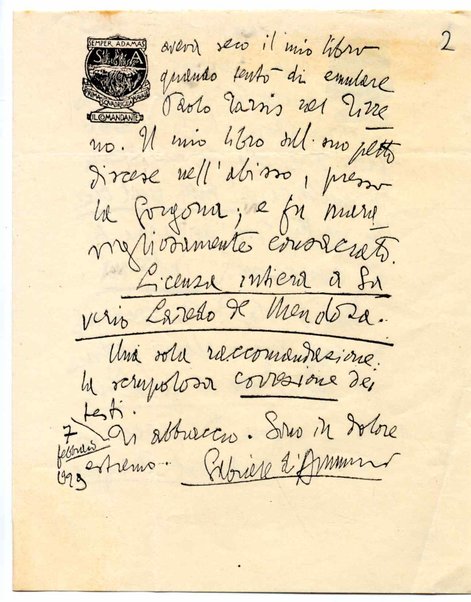 2
SEMPER ADAMAS
S A
IL COMANDANTE
aveva seco il mio libro
quando tentò di emulare
Paolo Tarsis nel Tirre
no. Il mio libro sul suo petto
discese nell'abisso, presso
la Gorgona; e fu mara
vigliosamente consacrato.
Licenza intiera a Sa
verio Laredo de Mendoza.
Una sola raccomandazione:
la scrupolosa correzione dei
testi.
Ti abbraccio. Sono in dolore
estremo.
Gabriele d'Annunzio
7
febbraio
1929